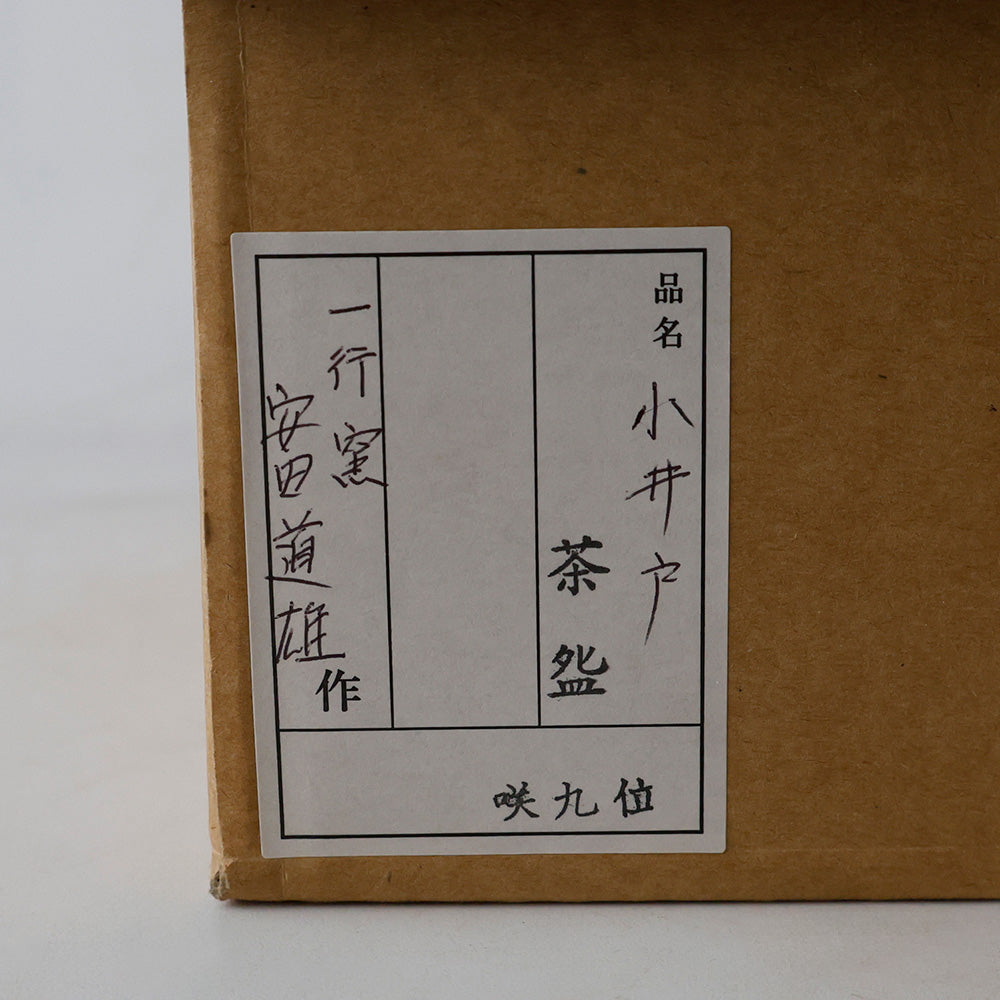 品名
小井戸
茶盌
一行窯
安田道雄
作
咲九位